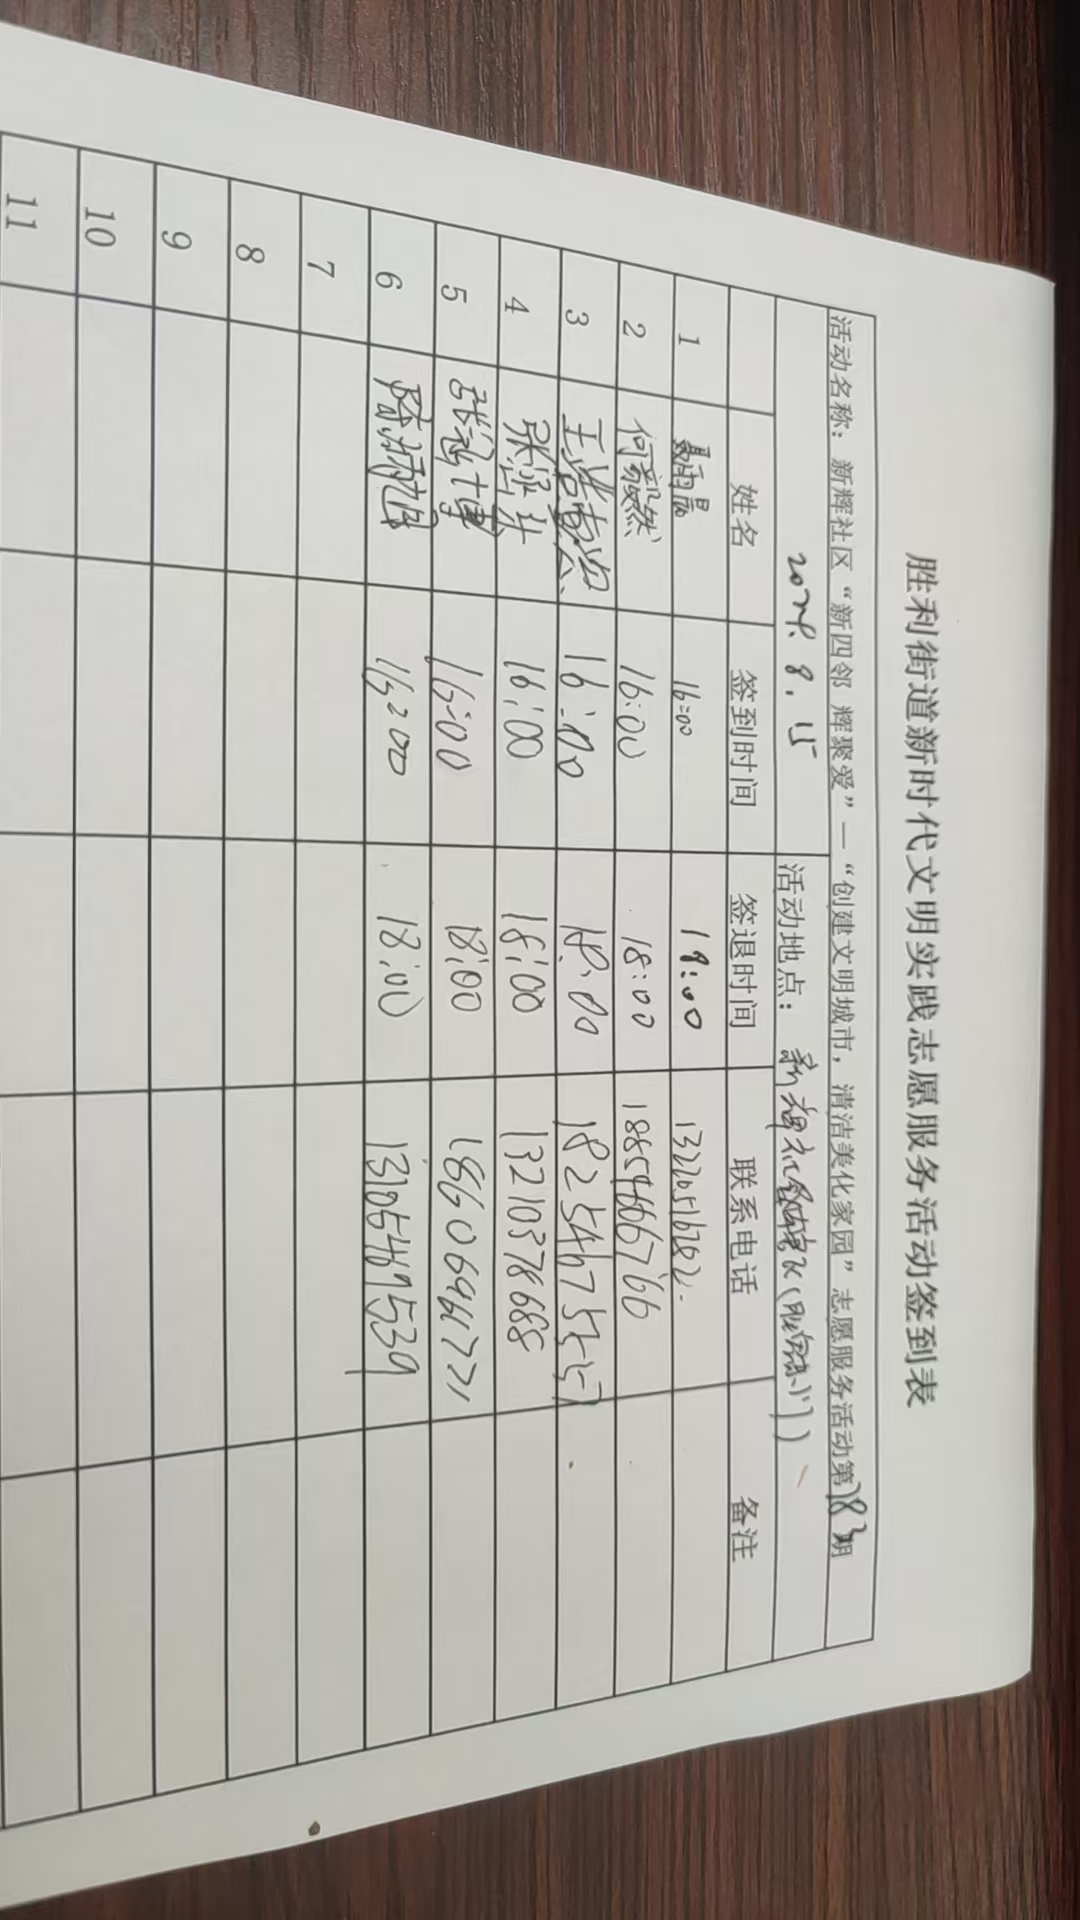 胜利街道新时代文明实践志愿服务活动签到表
活动名称：新辉社区“新四邻 辉聚爱”—“创建文明城市，清洁美化家园”志愿服务活动第183期
8.15 活动地点：
姓名 签到时间 签退时间 联系电话 备注
1 16:00 18:00 13220516782
2 何毅然 16:00 18:00 18854666766
3 王 16:00 18:00 18254675557
4 张 16:00 18:00 13210378688
5 张冠博 16:00 18:00 18606461771
6 16:00 18:00 13105467539
7
8
9
10
11